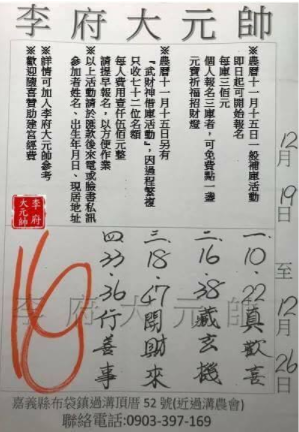 李府大元帥
※農曆十一月十五日一般補庫活動
即日起可開始報名
每庫三佰元
個人報名三庫者，可免費點一盞
元寶祈福招財燈
※農曆十一月十五日另有
『武財神借庫活動』，因過程繁複
只收七十二位名額
每人費用壹仟伍佰元整
請提早報名，以方便作業
※以上活動請於匯款後來電或臉書私訊
參加者姓名、出生年月日、現居地址
※詳情可加入李府大元帥參考
※歡迎隨喜贊助建宮經費
12月19日至12月26日
李府大元帥
一.10.22真歡喜
二.16.38藏玄機
三.18.47開財來
四.33.36行善事
16
李府大元帥
嘉義縣布袋鎮過溝頂厝52號(近過溝農會)
聯絡電話:0903-397-169